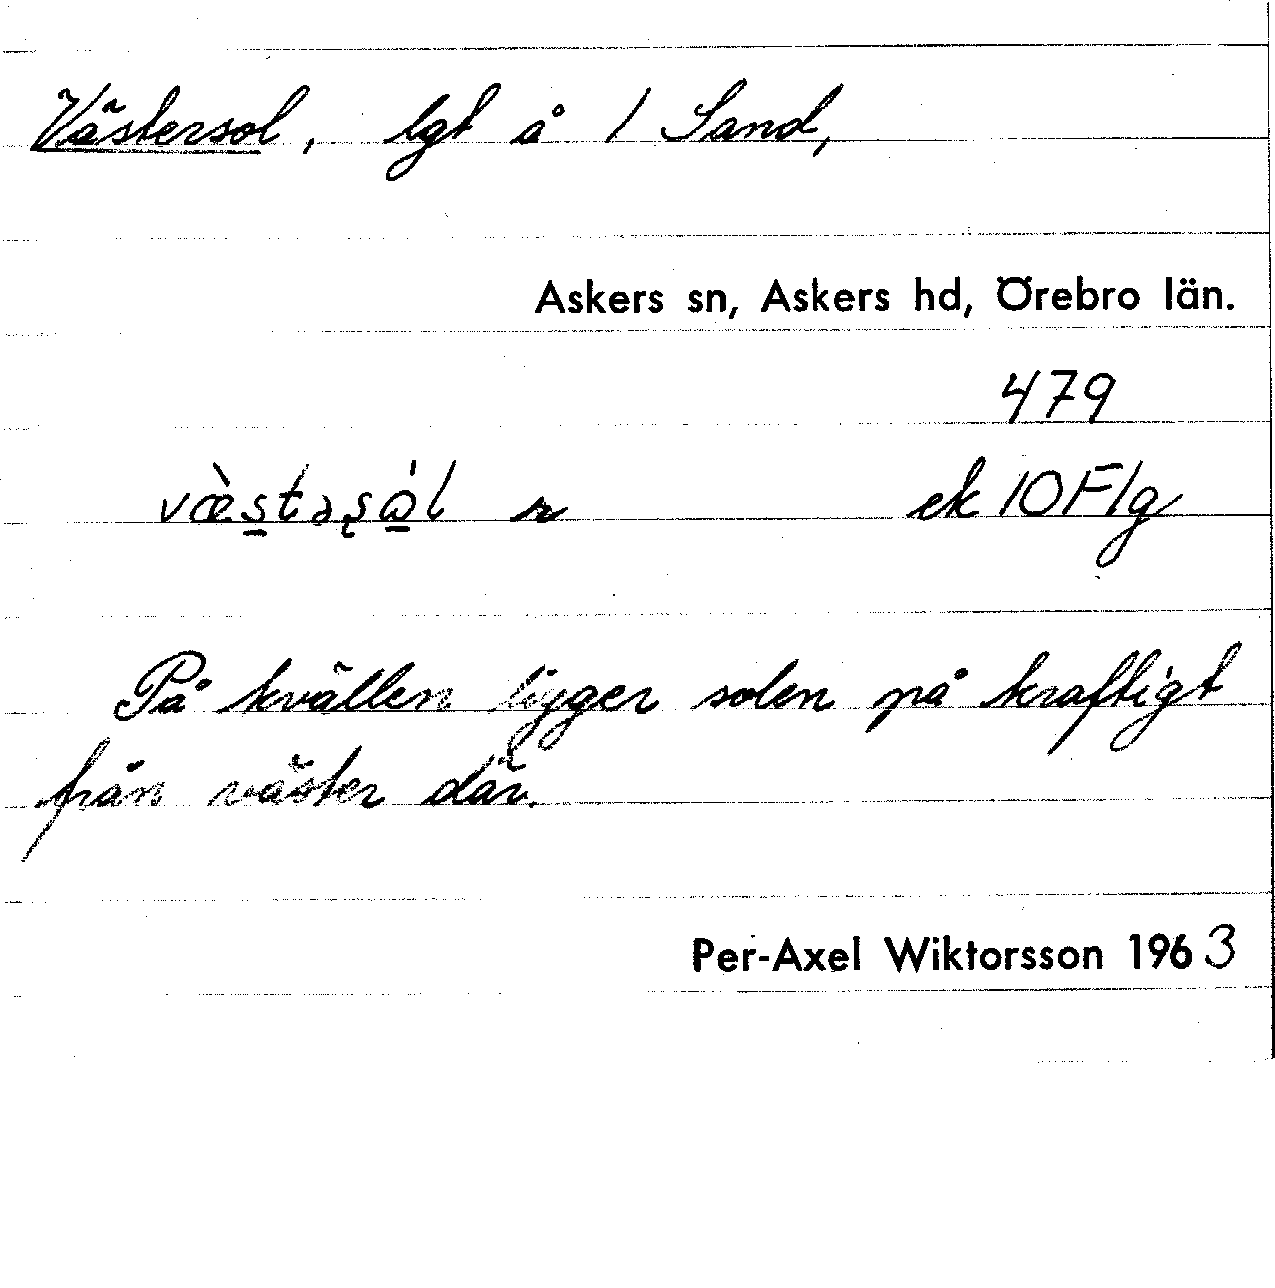 Västersol, lgt å / Sand,
Askers sn, Askers hd, Örebro län.
479
væ̀stəʂὼl n ek 10F1g
På kvällen ligger solen på kraftigt
från väster där.
Per-Axel Wiktorsson 1963